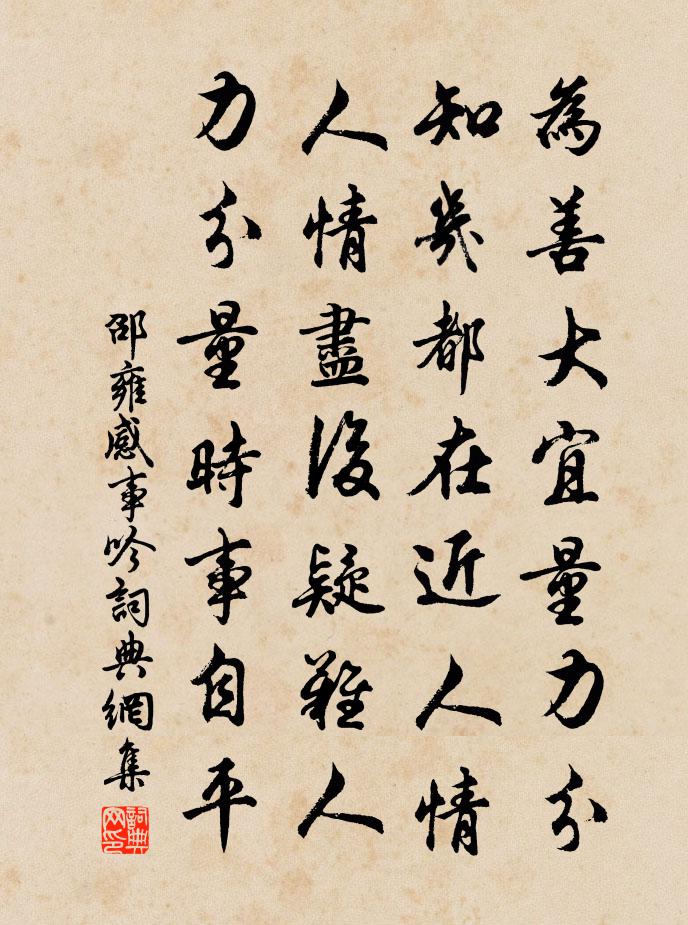 為善大宜量力分
知幾都在近人情
人情盡後疑難人
力分量時事自平
邵雍感事吟詞典網集
詞典网印